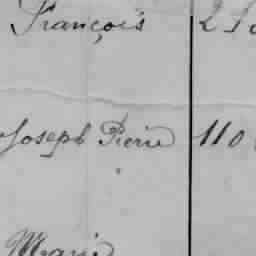 François 2
Joseph Pierre 110
Marie